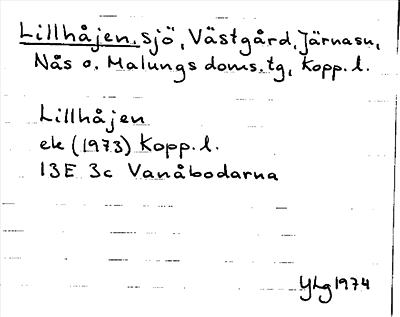 Lillhåjen, sjö, Västgård, Järnasn,
Nås o. Malungs doms.tg, Kopp. l.
Lillhåjen
ek (1973) Kopp. l.
13E 3c Vanåbodarna
YLg 1974